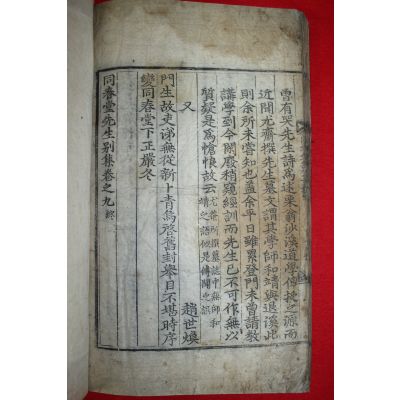 曾有哭先生詩爲述栗翁沙溪道學傳授之源而
近聞尤齋撰先生墓文謂其學師和靖與退溪此
則余所未嘗知也蓋余平日雖累登門未嘗請敎
講學到今閑廢稍窺經訓而先生已不可作無以
質疑是爲愴恨故云尤齋所撰墓誌中師和靖之語似是傳聞之誤
又 趙世煥
門生故吏涕無從新卜靑烏啓舊封擧目不堪時序
變同春堂下正嚴冬
同春堂先生別集卷之九終